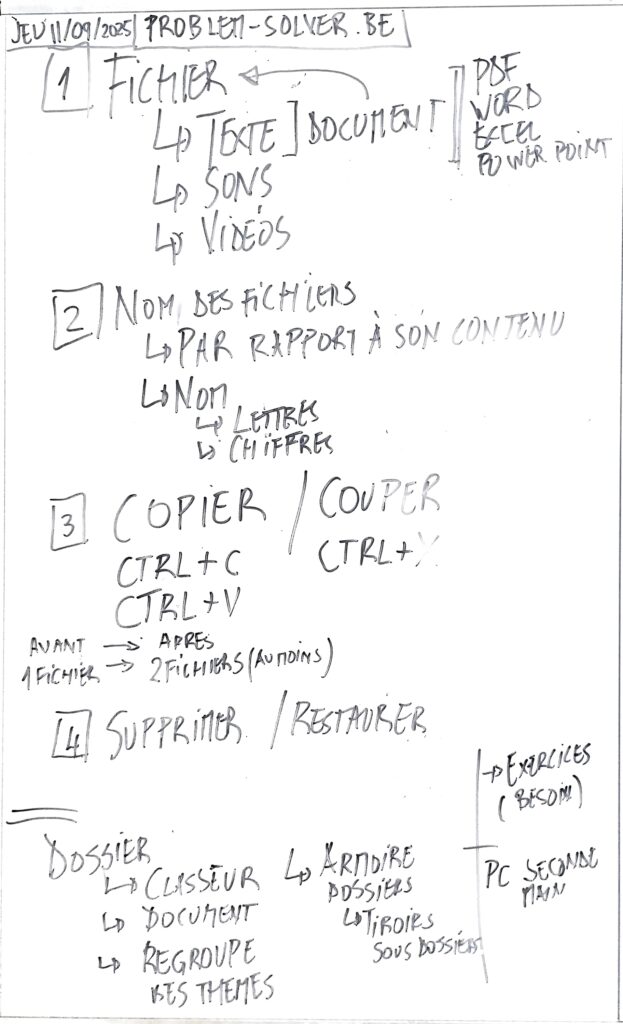 JEU 11/09/2025 PROBLEM-SOLVER.BE
1 FICHIER
↳ TEXTE ] DOCUMENT
PDF
WORD
EXCEL
POWER POINT
↳ SONS
↳ VIDÉOS
2 NOM DES FICHIERS
↳ PAR RAPPORT À SON CONTENU
↳ NOM
↳ LETTRES
↳ CHIFFRES
3 COPIER / COUPER
CTRL+C CTRL+X
CTRL+V
AVANT → APRES
1 FICHIER → 2 FICHIERS (AU MOINS)
4 SUPPRIMER / RESTAURER
→ EXERCICES
(BESOIN)
PC SECONDE
MAIN
DOSSIER
↳ CLASSEUR
↳ DOCUMENT
↳ REGROUPE
DES THEMES
↳ ARMOIRE
DOSSIERS
↳ TIROIRS
SOUS DOSSIERS